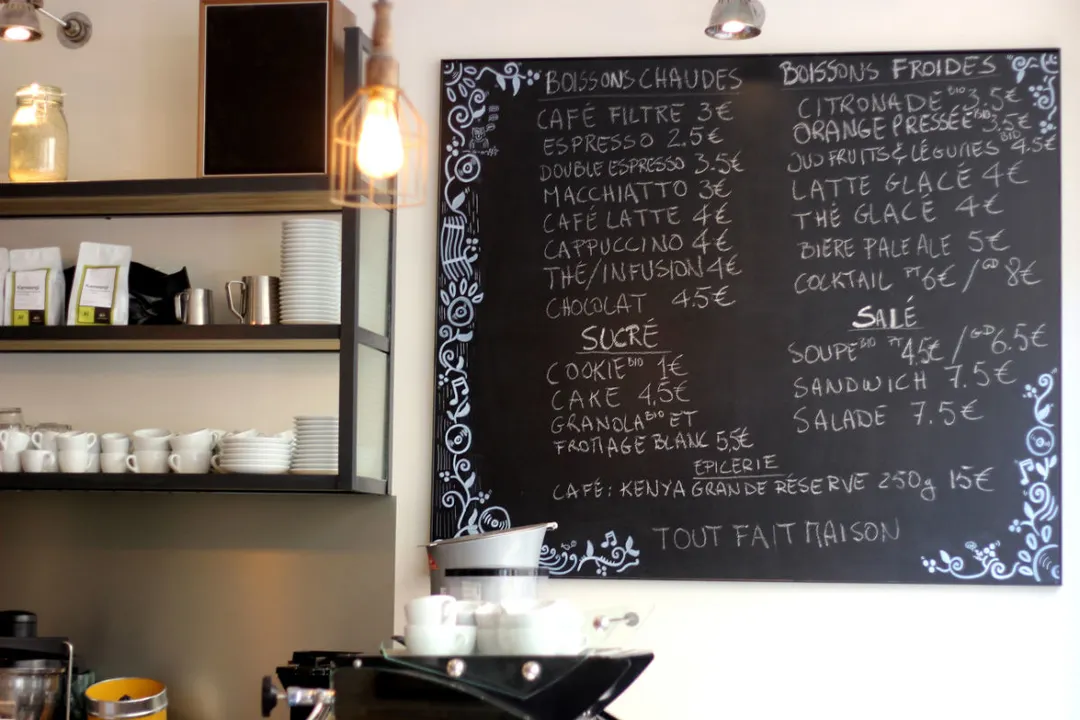 BOISSONS CHAUDES
CAFÉ FILTRE 3€
ESPRESSO 2.5€
DOUBLE ESPRESSO 3.5€
MACCHIATTO 3€
CAFÉ LATTE 4€
CAPPUCCINO 4€
THÉ/INFUSION 4€
CHOCOLAT 4.5€
SUCRÉ
COOKIE BIO 1€
CAKE 4,5€
GRANOLA BIO ET
FROMAGE BLANC 5,5€
BOISSONS FROIDES
CITRONADE BIO 3.5€
ORANGE PRESSÉE BIO 3.5€
JUS FRUITS & LÉGUMES BIO 4.5€
LATTE GLACÉ 4€
THÉ GLACÉ 4€
BIÈRE PALE ALE 5€
COCKTAIL PT 6€ / GD 8€
SALÉ
SOUPE BIO PT 4.5€ / GD 6.5€
SANDWICH 7.5€
SALADE 7.5€
EPICERIE
CAFÉ: KENYA GRANDE RÉSERVE 250g 15€
TOUT FAIT MAISON